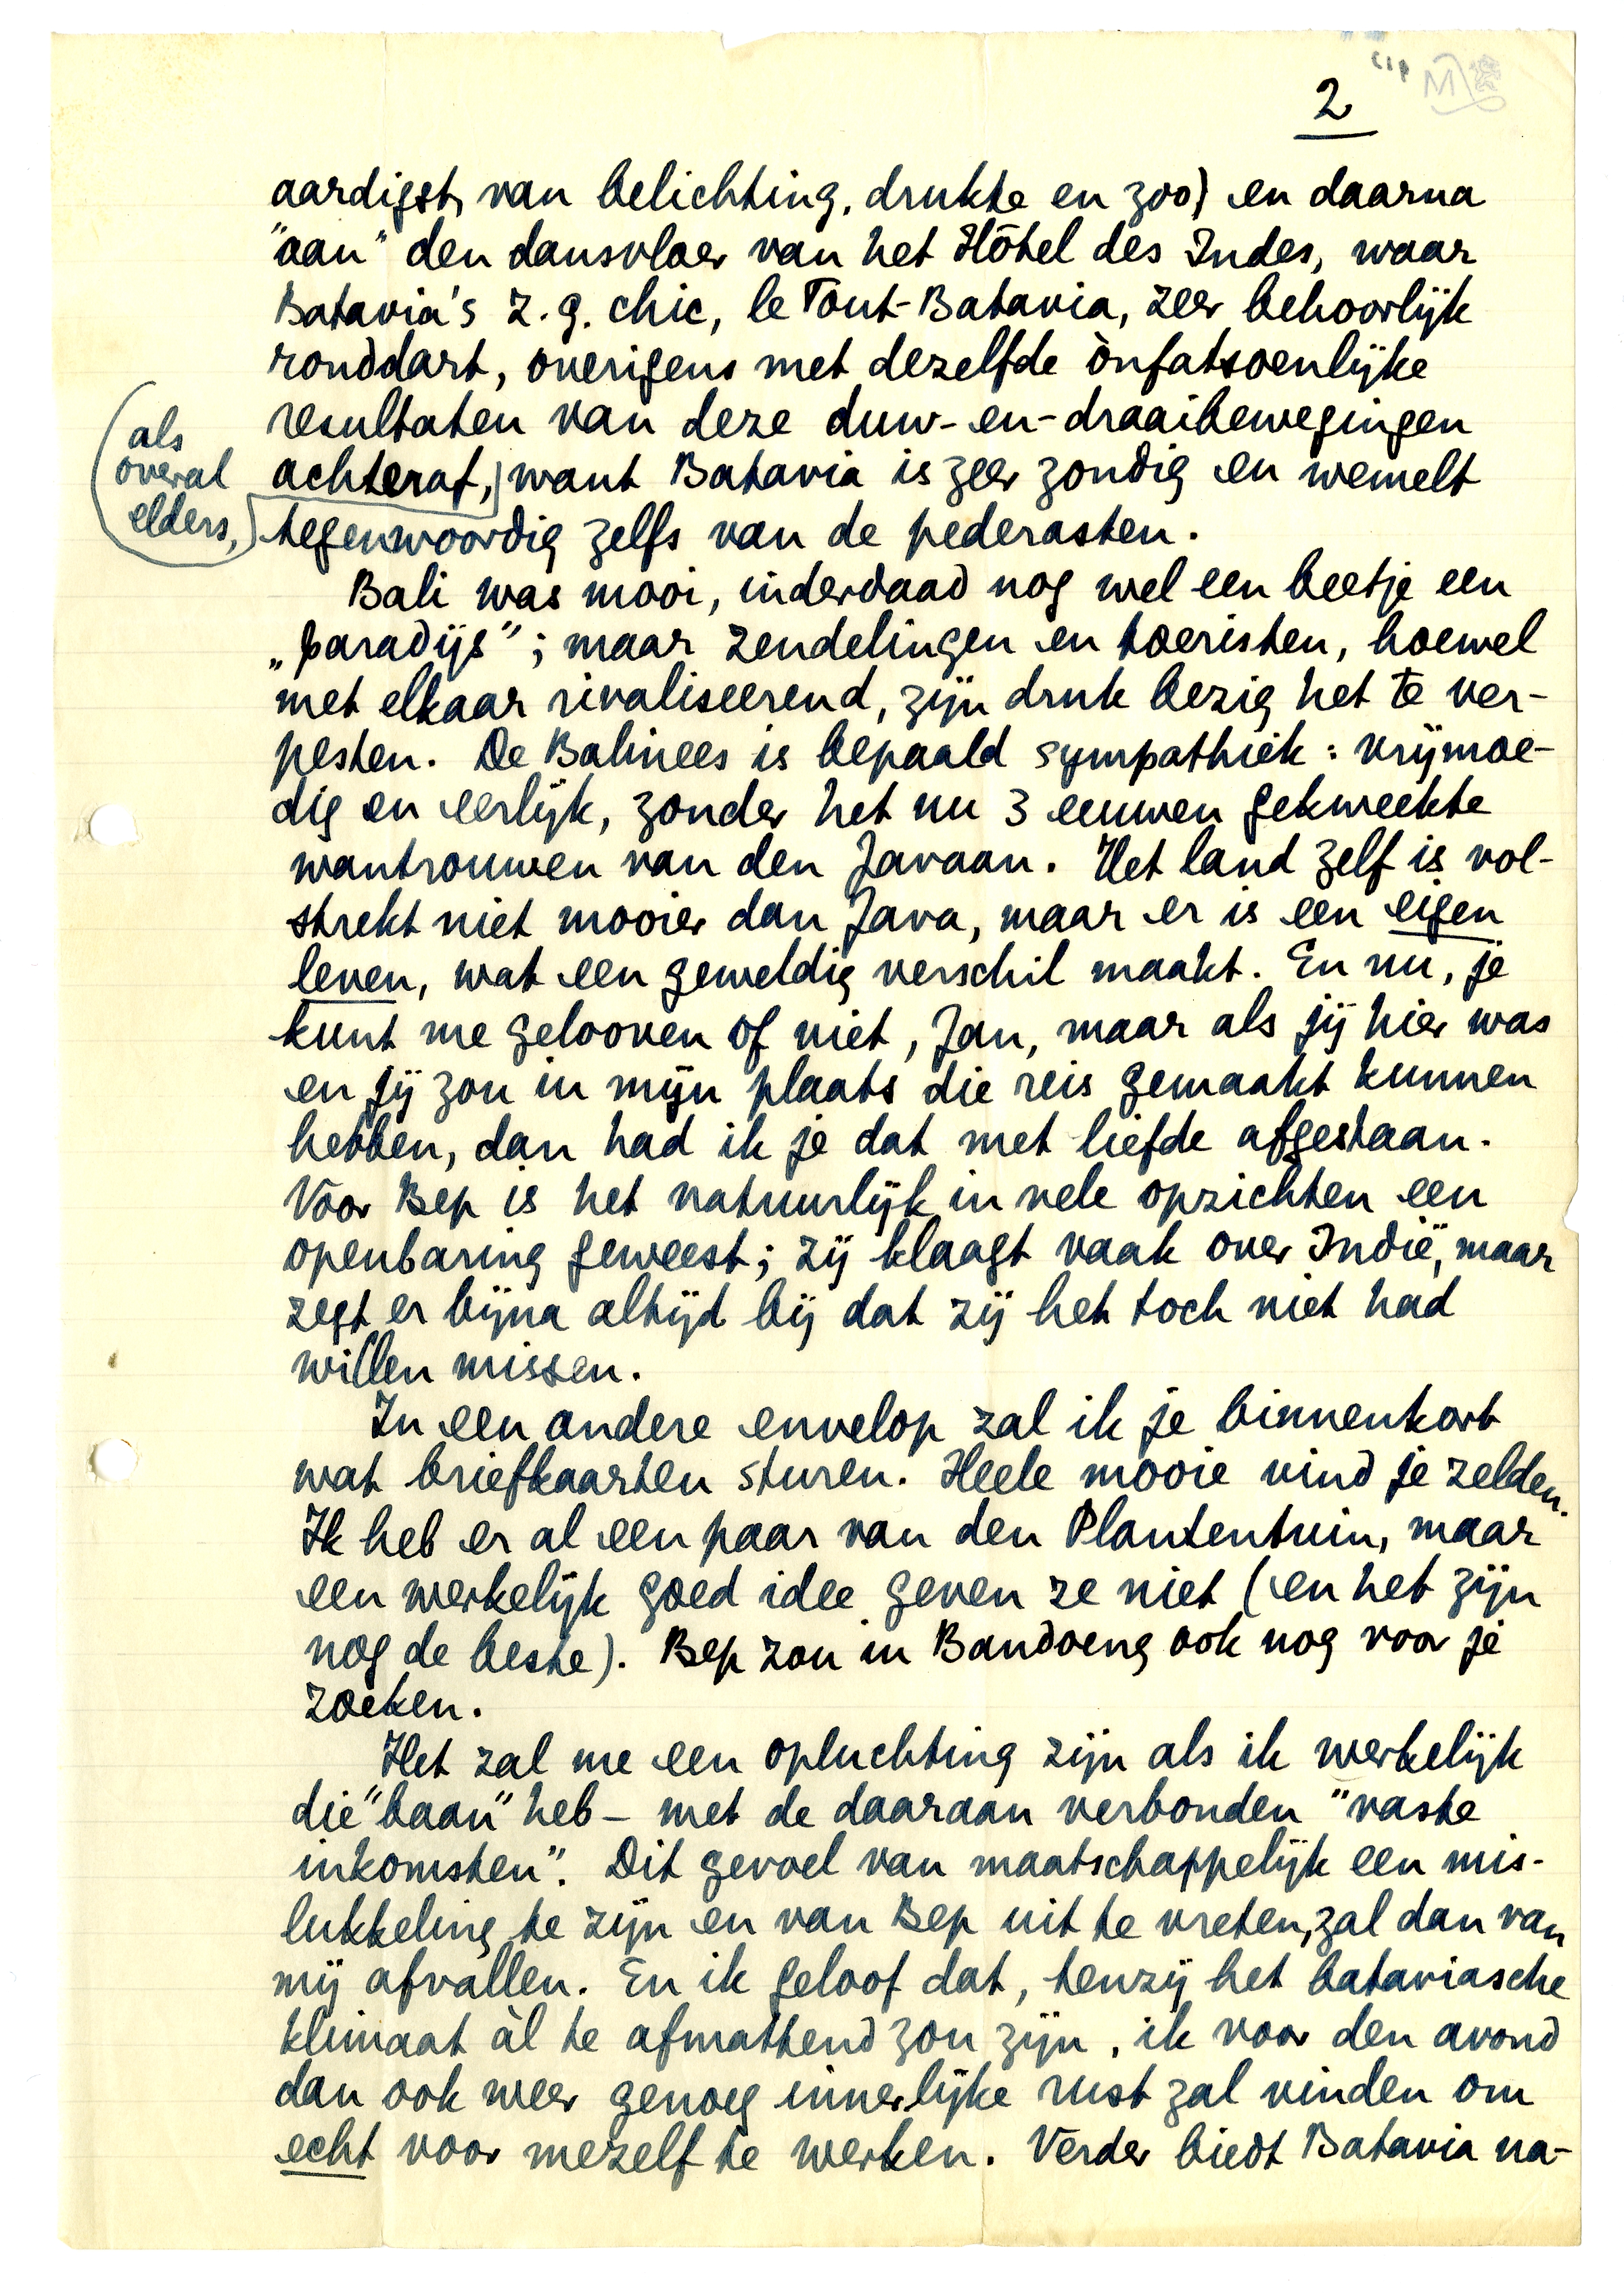 2
aardigst, van belichting, drukte en zoo) en daarna
"aan" den dansvloer van het Hôtel des Indes, waar
Batavia's z.g. chic, le Tout-Batavia, zeer behoorlijk
ronddart, overigens met dezelfde ònfatsoenlijke
resultaten van deze duw-en-draaibewegingen
achteraf, want Batavia is zeer zondig en wemelt
(als
overal
elders,)
tegenwoordig zelfs van de pederasten.
Bali was mooi, inderdaad nog wel een beetje een
„paradijs"; maar zendelingen en toeristen, hoewel
met elkaar rivaliseerend, zijn druk bezig het te ver-
pesten. De Balinees is bepaald sympathiek: vrijmoe-
dig en eerlijk, zonder het nu 3 eeuwen gekweekte
wantrouwen van den Javaan. Het land zelf is vol-
strekt niet mooier dan Java, maar er is een eigen
leven, wat een geweldig verschil maakt. En nu, je
kunt me gelooven of niet, Jan, maar als jij hier was
en jij zou in mijn plaats die reis gemaakt kunnen
hebben, dan had ik je dat met liefde afgestaan.
Voor Bep is het natuurlijk in vele opzichten een
openbaring geweest; zij klaagt vaak over Indië, maar
zegt er bijna altijd bij dat zij het toch niet had
willen missen.
In een andere envelop zal ik je binnenkort
wat briefkaarten sturen. Heele mooie vind je zelden.
Ik heb er al een paar van den Plantentuin, maar
een werkelijk goed idee geven ze niet (en het zijn
nog de beste). Bep zou in Bandoeng ook nog voor je
zoeken.
Het zal me een opluchting zijn als ik werkelijk
die "baan" heb – met de daaraan verbonden "vaste
inkomsten". Dit gevoel van maatschappelijk een mis-
lukkeling te zijn en van Bep uit te vreten, zal dan van
mij afvallen. En ik geloof dat, tenzij het bataviasche
klimaat àl te afmattend zou zijn, ik voor den avond
dan ook weer genoeg innerlijke rust zal vinden om
echt voor mezelf te werken. Verder biedt Batavia na-